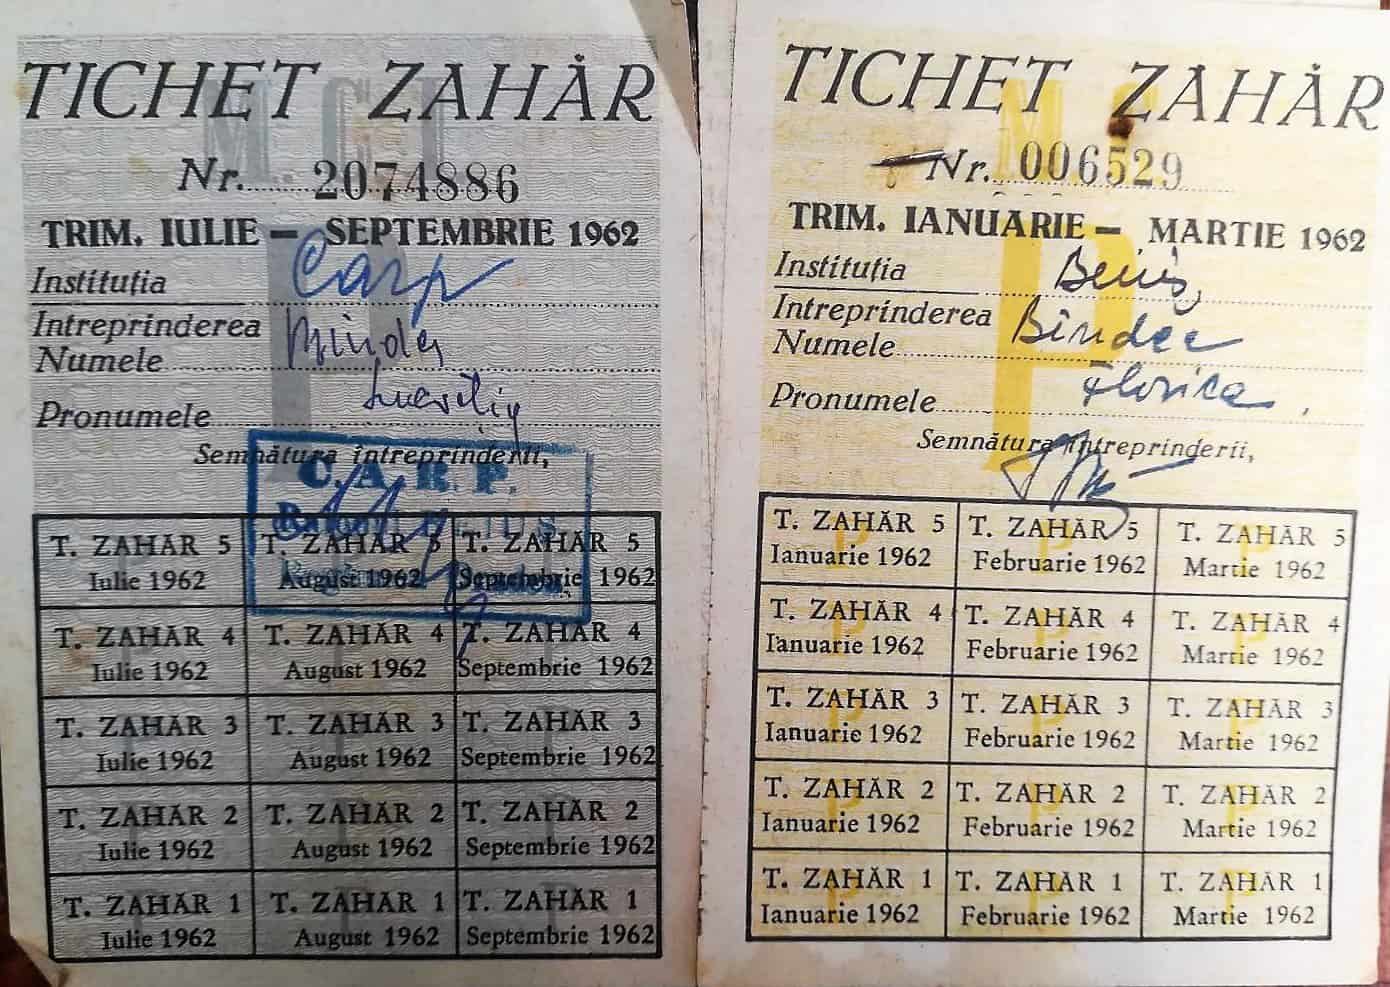 TICHET ZAHĂR
M.C.I.
Nr. 2074886
TRIM. IULIE — SEPTEMBRIE 1962
Instituția Carp
Intreprinderea
Numele
Pronumele
Semnătura întreprinderii,
C.A.R.P.
T. ZAHĂR 5 T. ZAHĂR 5 T. ZAHĂR 5
Iulie 1962 August 1962 Septembrie 1962
T. ZAHĂR 4 T. ZAHĂR 4 T. ZAHĂR 4
Iulie 1962 August 1962 Septembrie 1962
T. ZAHĂR 3 T. ZAHĂR 3 T. ZAHĂR 3
Iulie 1962 August 1962 Septembrie 1962
T. ZAHĂR 2 T. ZAHĂR 2 T. ZAHĂR 2
Iulie 1962 August 1962 Septembrie 1962
T. ZAHĂR 1 T. ZAHĂR 1 T. ZAHĂR 1
Iulie 1962 August 1962 Septembrie 1962
TICHET ZAHĂR
Nr. 006529
TRIM. IANUARIE — MARTIE 1962
Instituția Beiuș
Intreprinderea
Numele Bîndea
Pronumele Florica
Semnătura întreprinderii,
T. ZAHĂR 5 T. ZAHĂR 5 T. ZAHĂR 5
Ianuarie 1962 Februarie 1962 Martie 1962
T. ZAHĂR 4 T. ZAHĂR 4 T. ZAHĂR 4
Ianuarie 1962 Februarie 1962 Martie 1962
T. ZAHĂR 3 T. ZAHĂR 3 T. ZAHĂR 3
Ianuarie 1962 Februarie 1962 Martie 1962
T. ZAHĂR 2 T. ZAHĂR 2 T. ZAHĂR 2
Ianuarie 1962 Februarie 1962 Martie 1962
T. ZAHĂR 1 T. ZAHĂR 1 T. ZAHĂR 1
Ianuarie 1962 Februarie 1962 Martie 1962